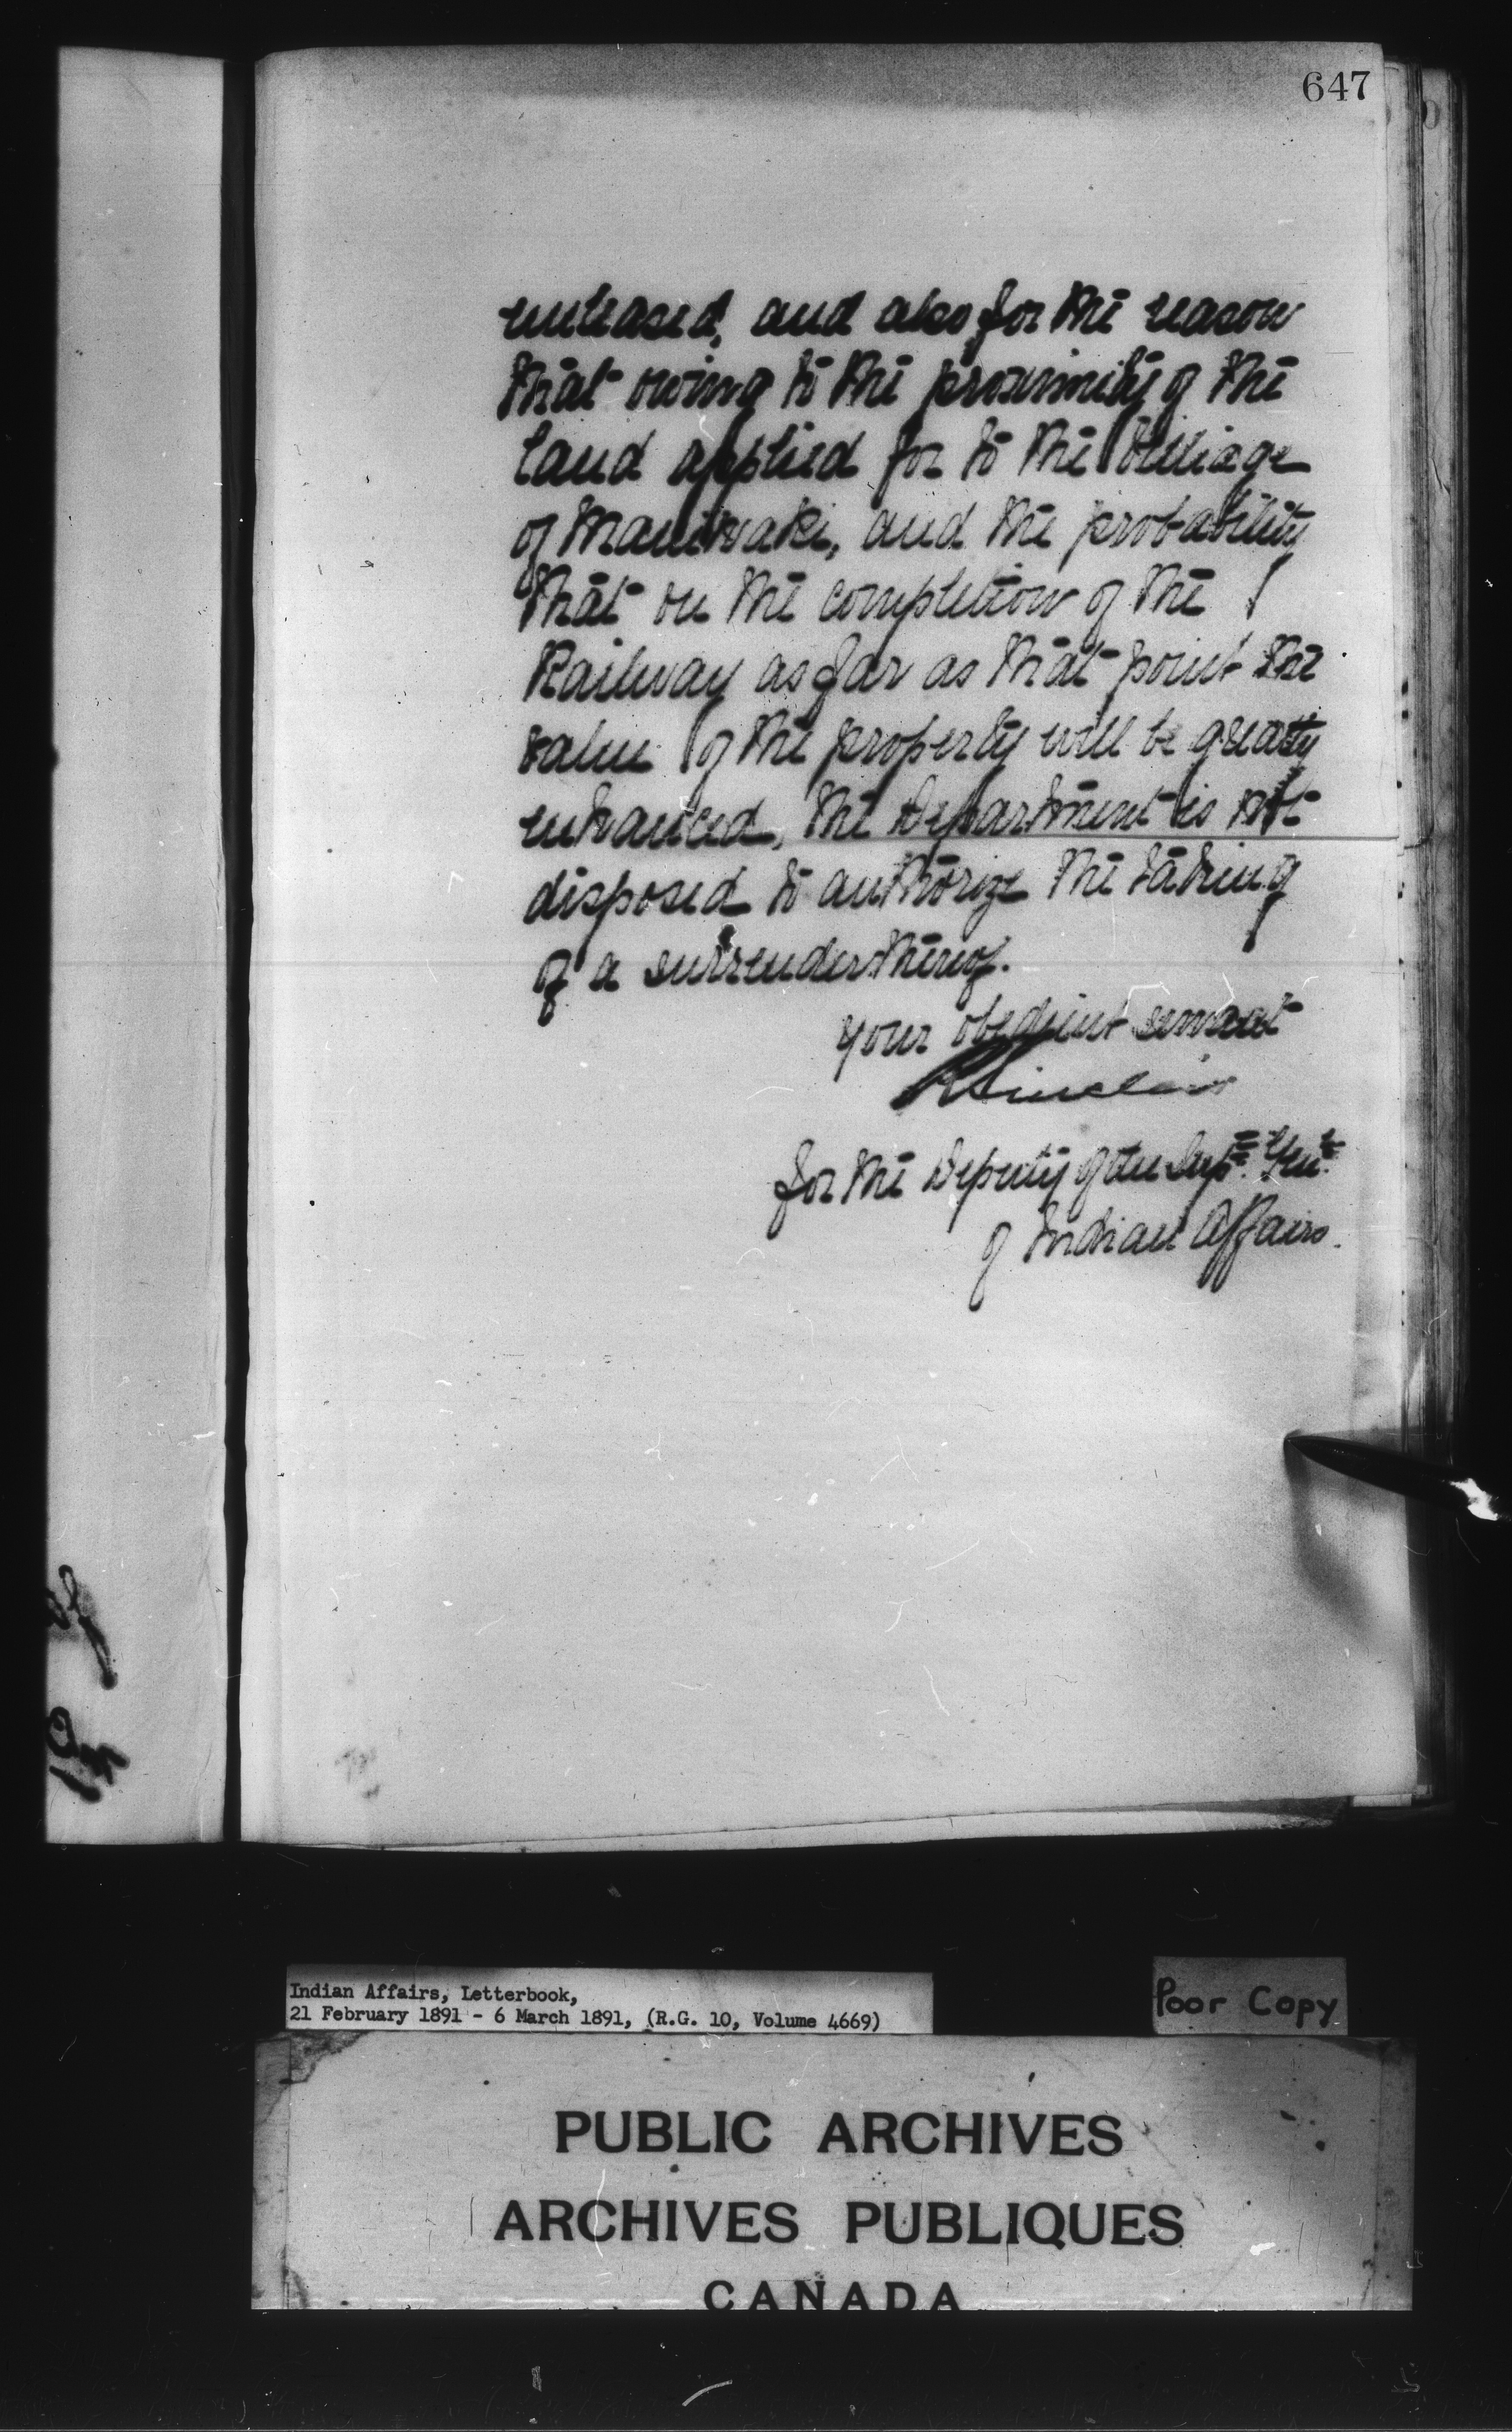 647
unleased, and also for the reason
that owing to the proximity of the
land applied for to the Village
of Maniwaki, and the probability
that on the completion of the
Railway as far as that point the
value of the property will be greatly
enhanced, the Department is not
disposed to authorize the taking
of a surrender thereof.
Your obedient servant
R Sinclair
for the Deputy of the Supt. Genl.
of Indian Affairs.
Indian Affairs, Letterbook,
21 February 1891 - 6 March 1891, (R.G. 10, Volume 4669)
Poor Copy
PUBLIC ARCHIVES
ARCHIVES PUBLIQUES
CANADA